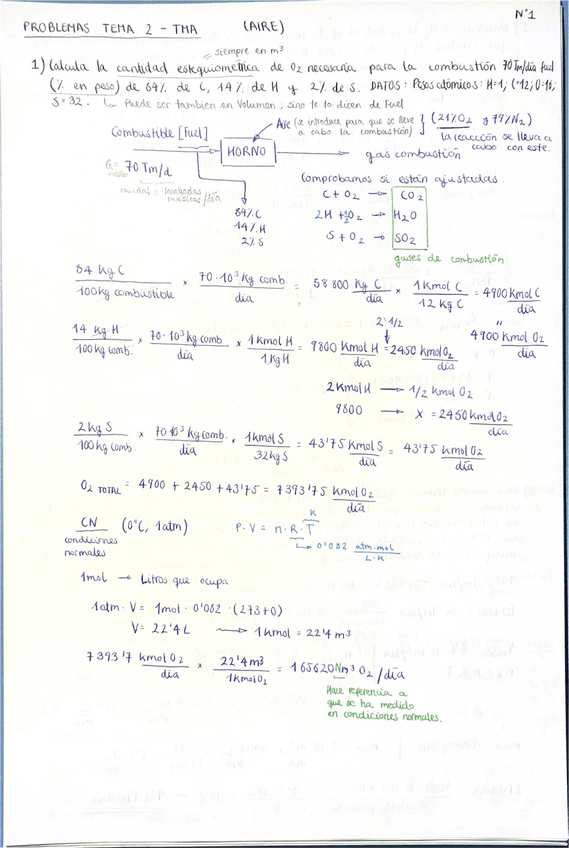 Nº1
PROBLEMAS TEMA 2 - TMA (AIRE)
siempre en m³
1) Calcula la cantidad estequiométrica de O2 necesaria para la combustión 70 Tm/día fuel
(% en peso) de 84% de C, 14% de H y 2% de S. DATOS: Pesos atómicos: H=1; C=12; O=16;
S=32. Puede ser tambien en Volumen, sino te lo dicen de Fuel
Combustible [Fuel]
Aire (se introduce para que se lleve a cabo la combustión) } (21% O2 y 79% N2)
la reacción se lleva a cabo con este.
HORNO
gas combustión
= 70 Tm/d
caudal = toneladas másicas/día
84% C
14% H
2% S
Comprobamos si están ajustadas.
C + O2 → CO2
2H + ½O2 → H2O
S + O2 → SO2
gases de combustión
84 Kg C / 100 Kg combustible × 70·10³ Kg comb. / día = 58800 Kg C / día × 1 Kmol C / 12 Kg C = 4900 Kmol C / día
"
4900 Kmol O2 / día
2:1/2
14 Kg H / 100 Kg comb. × 70·10³ Kg comb / día × 1 Kmol H / 1 Kg H = 9800 Kmol H / día = 2450 Kmol O2 / día
2 Kmol H → 1/2 Kmol O2
9800 → X = 2450 Kmol O2 / día
2 Kg S / 100 Kg comb. × 70·10³ Kg comb. / día × 1 Kmol S / 32 Kg S = 43'75 Kmol S / día = 43'75 Kmol O2 / día
O2 TOTAL = 4900 + 2450 + 43'75 = 7393'75 Kmol O2 / día
CN (0°C, 1atm)
condiciones normales
K
P·V = n·R·T
0'082 atm·mol / L·K
1mol → Litros que ocupa
1atm · V = 1mol · 0'082 · (273+0)
V = 22'4 L → 1 Kmol = 22'4 m³
7393'7 Kmol O2 / día × 22'4 m³ / 1 Kmol O2 = 165620 Nm³ O2 / día
Hace referencia a
que se ha medido
en condiciones normales.